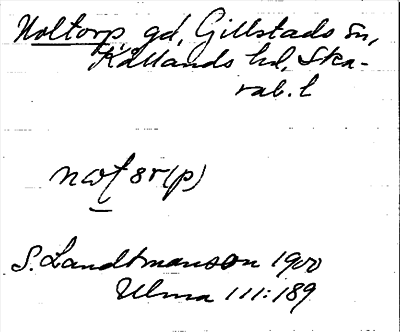 Noltorp, gd, Gillstads sn,
Kållands hd, Ska-
rab. l
S. Landtmanson 1900
Ulma 111:189